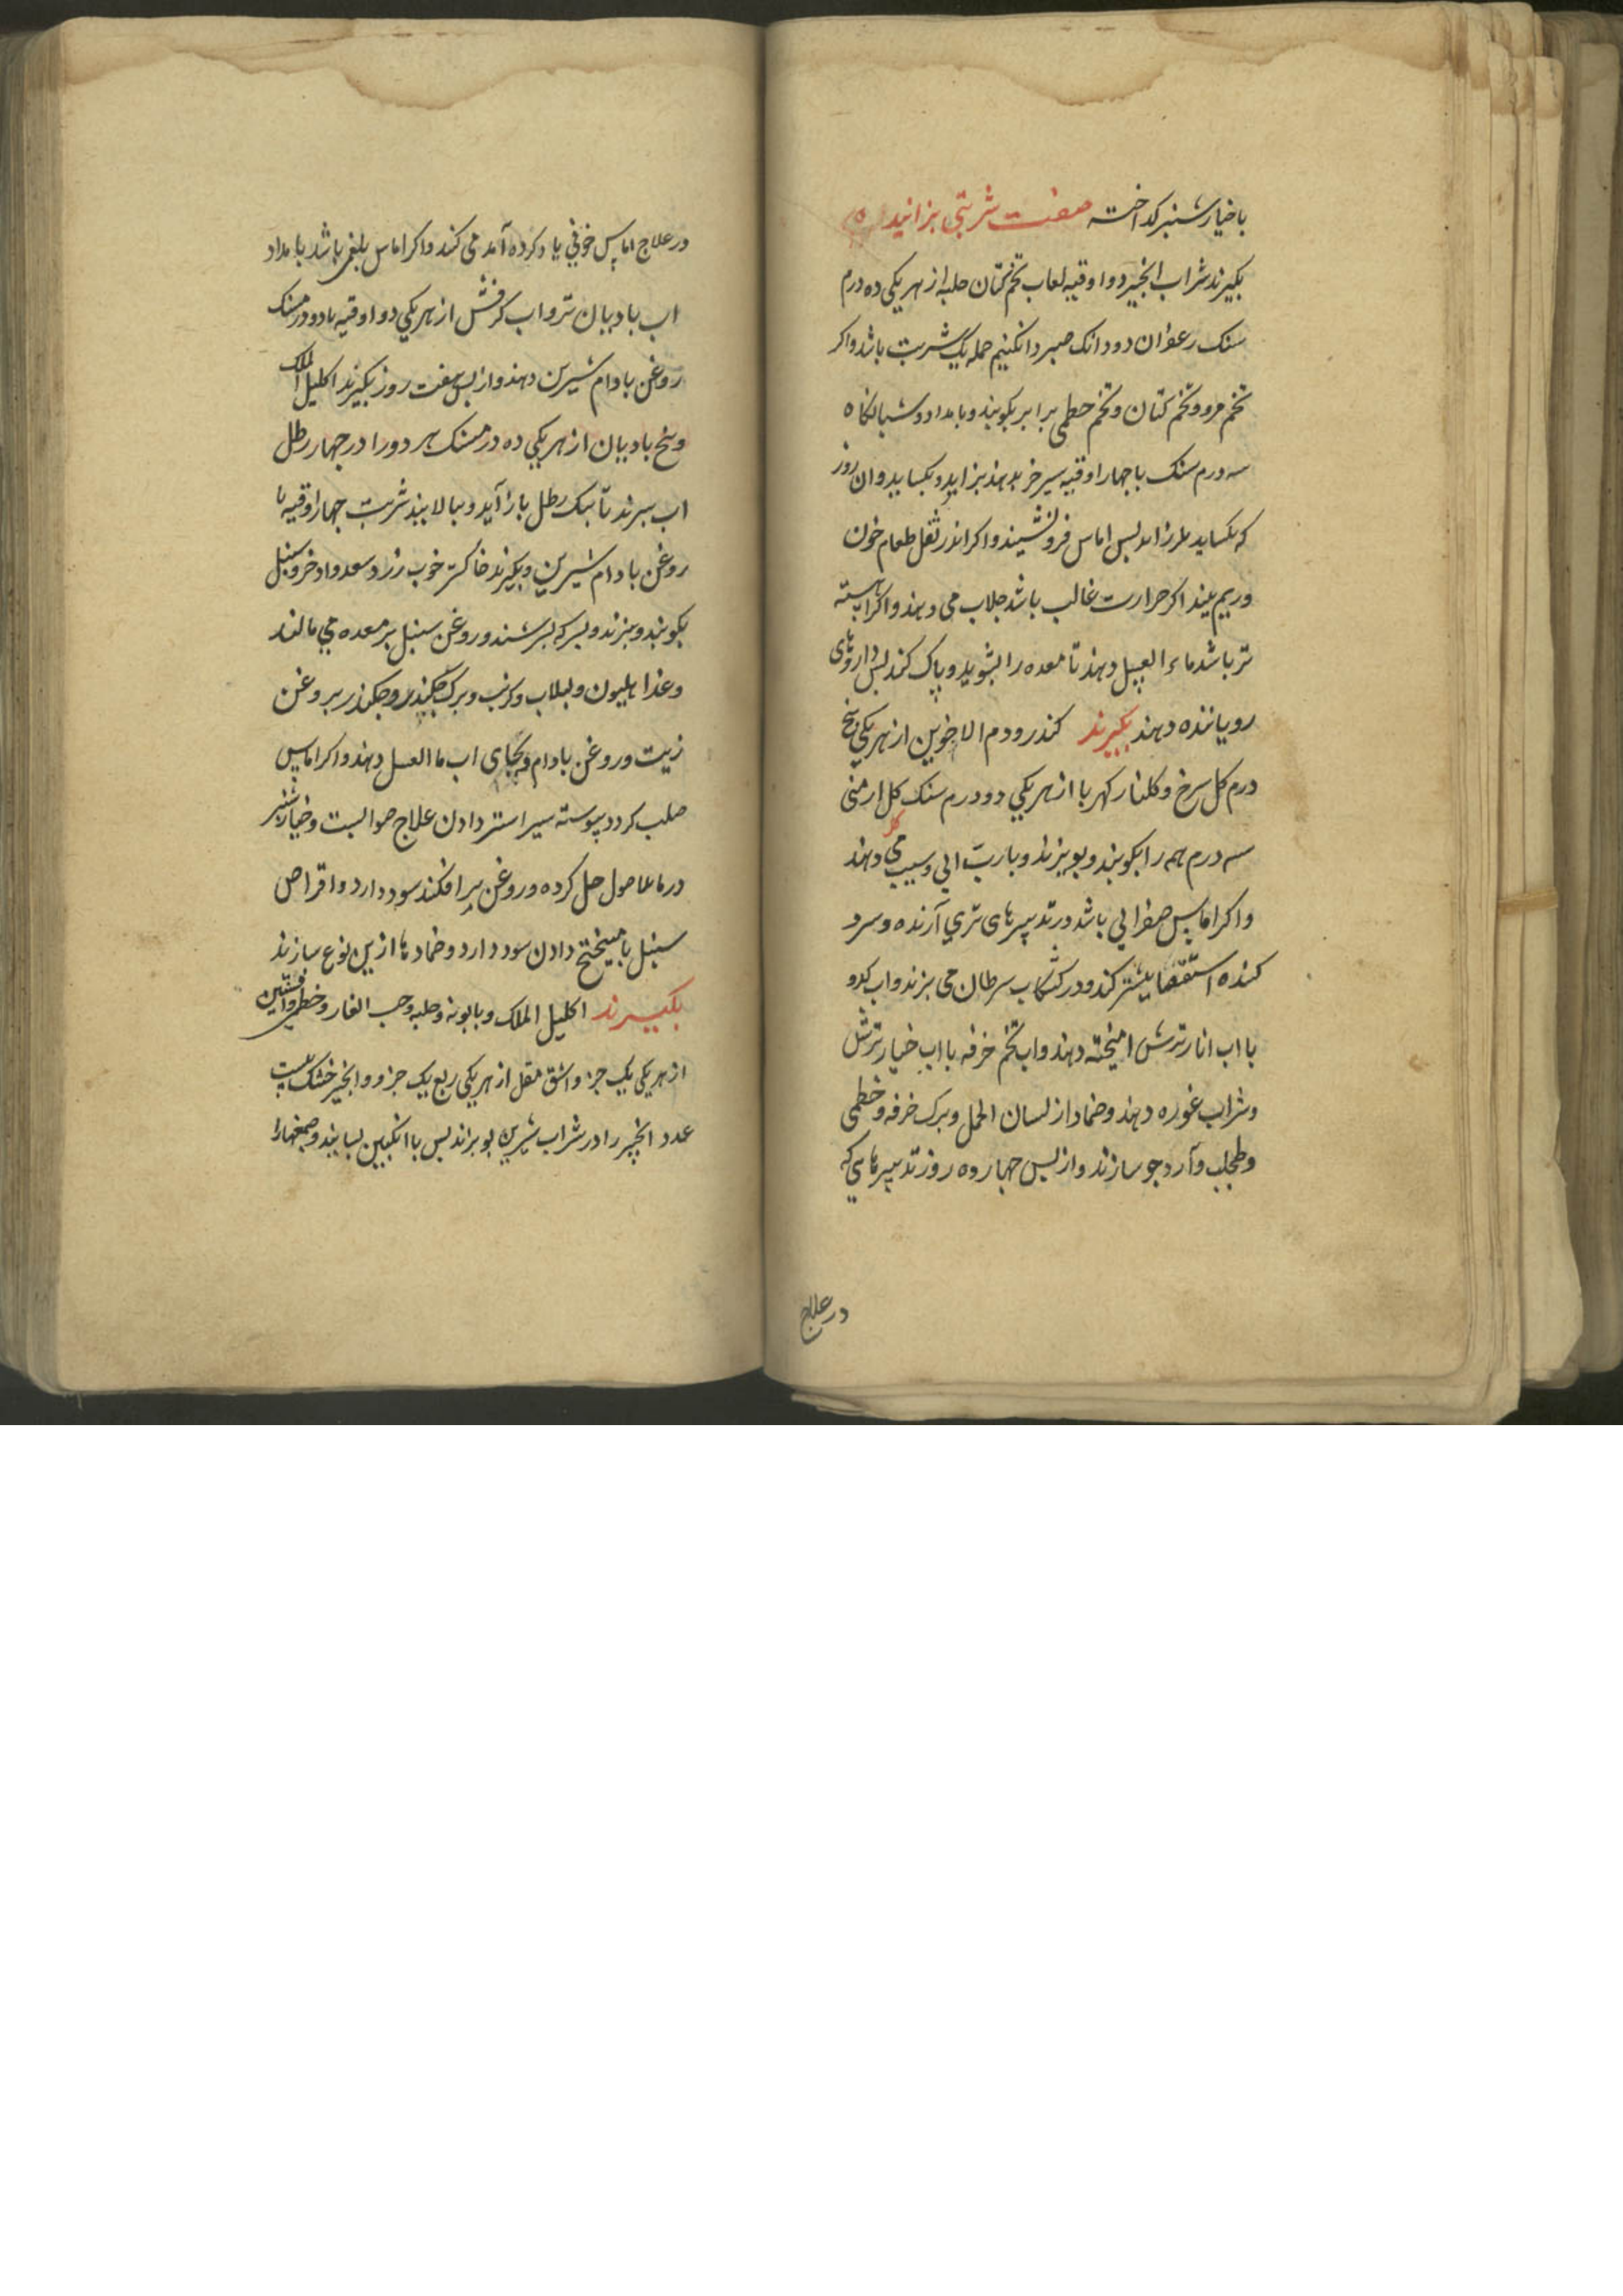 باخیارشنبر کداخته صفت شربتی بزانید
بکیرند شراب انجیر دو اوقیه لعاب تخم کتان حلبه از هر یکی ده درم
سنک زعفران دو دانک صبر دانکنیم جمله یک شربت باشد واکر
تخم مرو وتخم کتان وتخم خطمی برابر بکوبند وبامداد وشبانکاه
سه درم سنک با چهار اوقیه سیر خر بدهند بزاید وبکساید وان روز
که بکساید بس اماس فرونشیند واکر اندر ثقل طعام خون
وریم بیند اکر حرارت غالب باشد جلاب می دهند واکر اهسته
تر باشد ماء العسل دهند تا معده را بشوید وپاک کند بس داروهای
رویاننده دهند بکیرند کندر ودم الاخوین از هر یکی پنج
درم کل سرخ وکلنار کهربا از هر یکی دو درم سنک کل ارمنی
سه درم همه را بکوبند وبوبزند وبا رب ابی وسیب می دهند
واکر اماس صفرایی باشد در تدبیرهای تری آرنده وسرد
کننده استقصا بیشتر کند ودر کشکاب سرطان می بزند واب کدو
با اب انار ترش امیخته دهند واب تخم خرفه با اب خیار ترش
وشراب غوره دهند وضماد از لسان الحمل وبرک خرفه وخطمی
وطحلب وآرد جو سازند واز بس چهارده روز تدبیرهایی که
در علاج
در علاج اماس خونی یاد کرده آمد می کند واکر اماس بلغمی باشد بامداد
اب بادیان تر واب کرفش از هر یکی دو اوقیه با دو درمسنک
روغن بادام شیرین دهند واز بس هفت روز بکیرند اکلیل الملک
وبیخ بادیان از هر یکی ده درمسنک هر دو را در چهار رطل
اب ببرند تا بیک رطل باز آید وببالایند شربت چهار اوقیه با
روغن بادام شیرین وبکیرند خاکستر خوب رز وسعد واذخر وسنبل
بکوبند وببزند وبسرکه بسرشند وروغن سنبل بر معده می مالند
وغذا هلیون ولبلاب وکرنب وبرک چکندر وچکندر بروغن
زیت وروغن بادام وبجای اب ما العسل دهند واکر اماس
صلب کردد پیوسته سیر استر دادن علاج صوابست وخیارشنبر
در ماءالاصول حل کرده وروغن برافکند سود دارد واقراص
سنبل با میبختج دادن سود دارد وضمادها ازین نوع سازند
بکیرند اکلیل الملک وبابونه وحلبه وحب الغار وخطمی وافسنتین
از هر یکی یک جزء واشق مقل از هر یکی ربع یک جزو وانجیر خشک بیست
عدد انجیر را در شراب شیرین بوبزاند بس با انکبین بسایند وصمغهارا